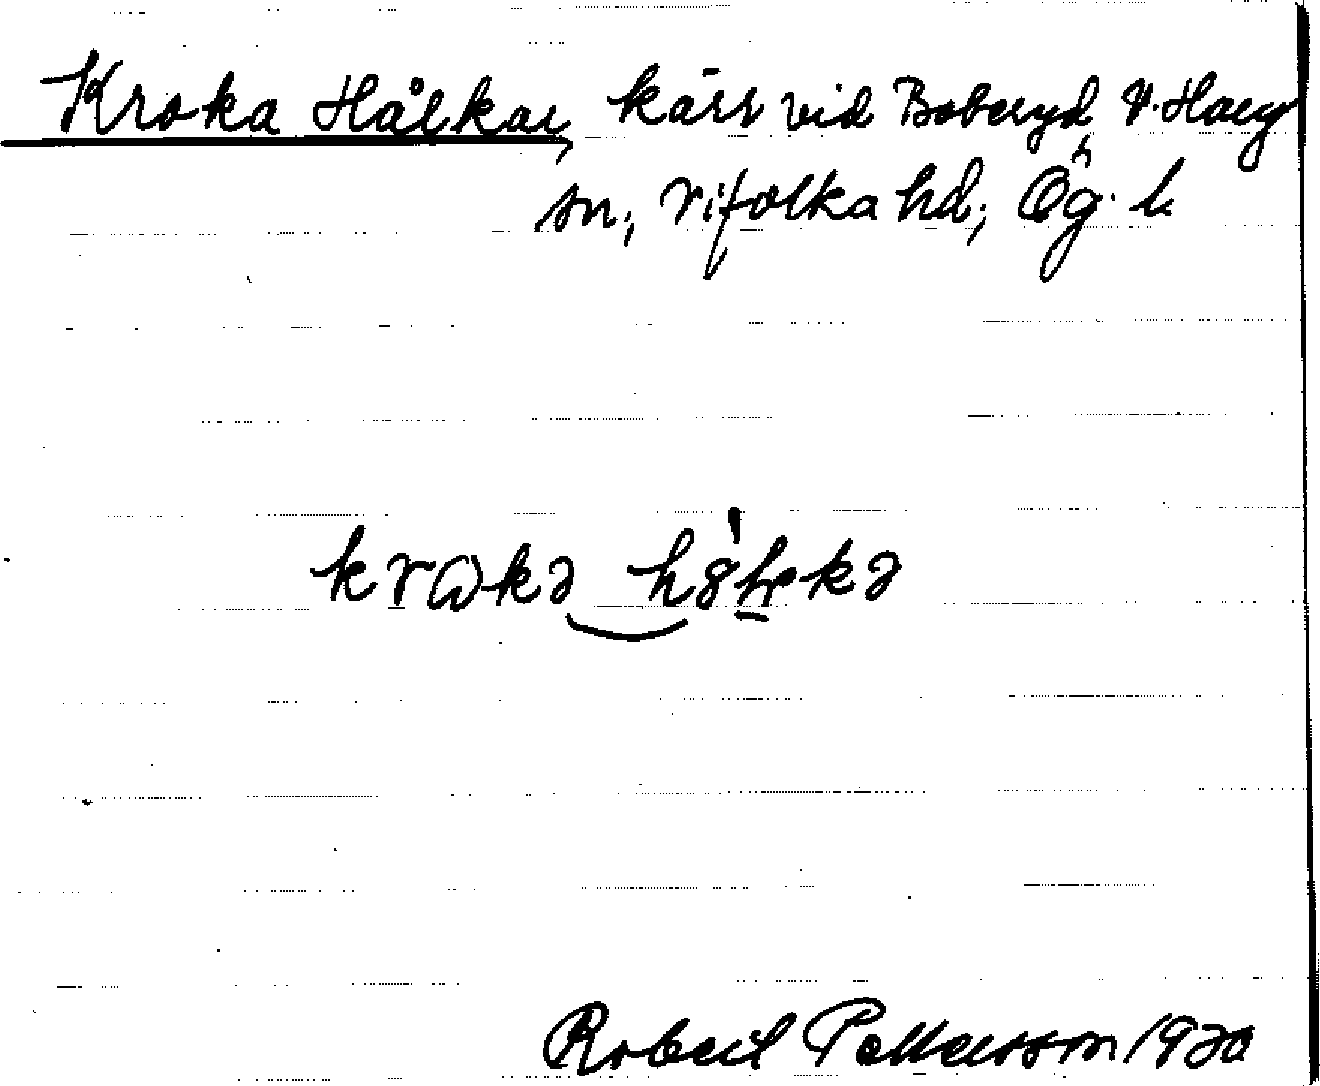 Kroka Hålkar, kärr vid Boberyd, V. Harg
sn, Vifolka hd, Ög. l.
Robert Pettersson 1920